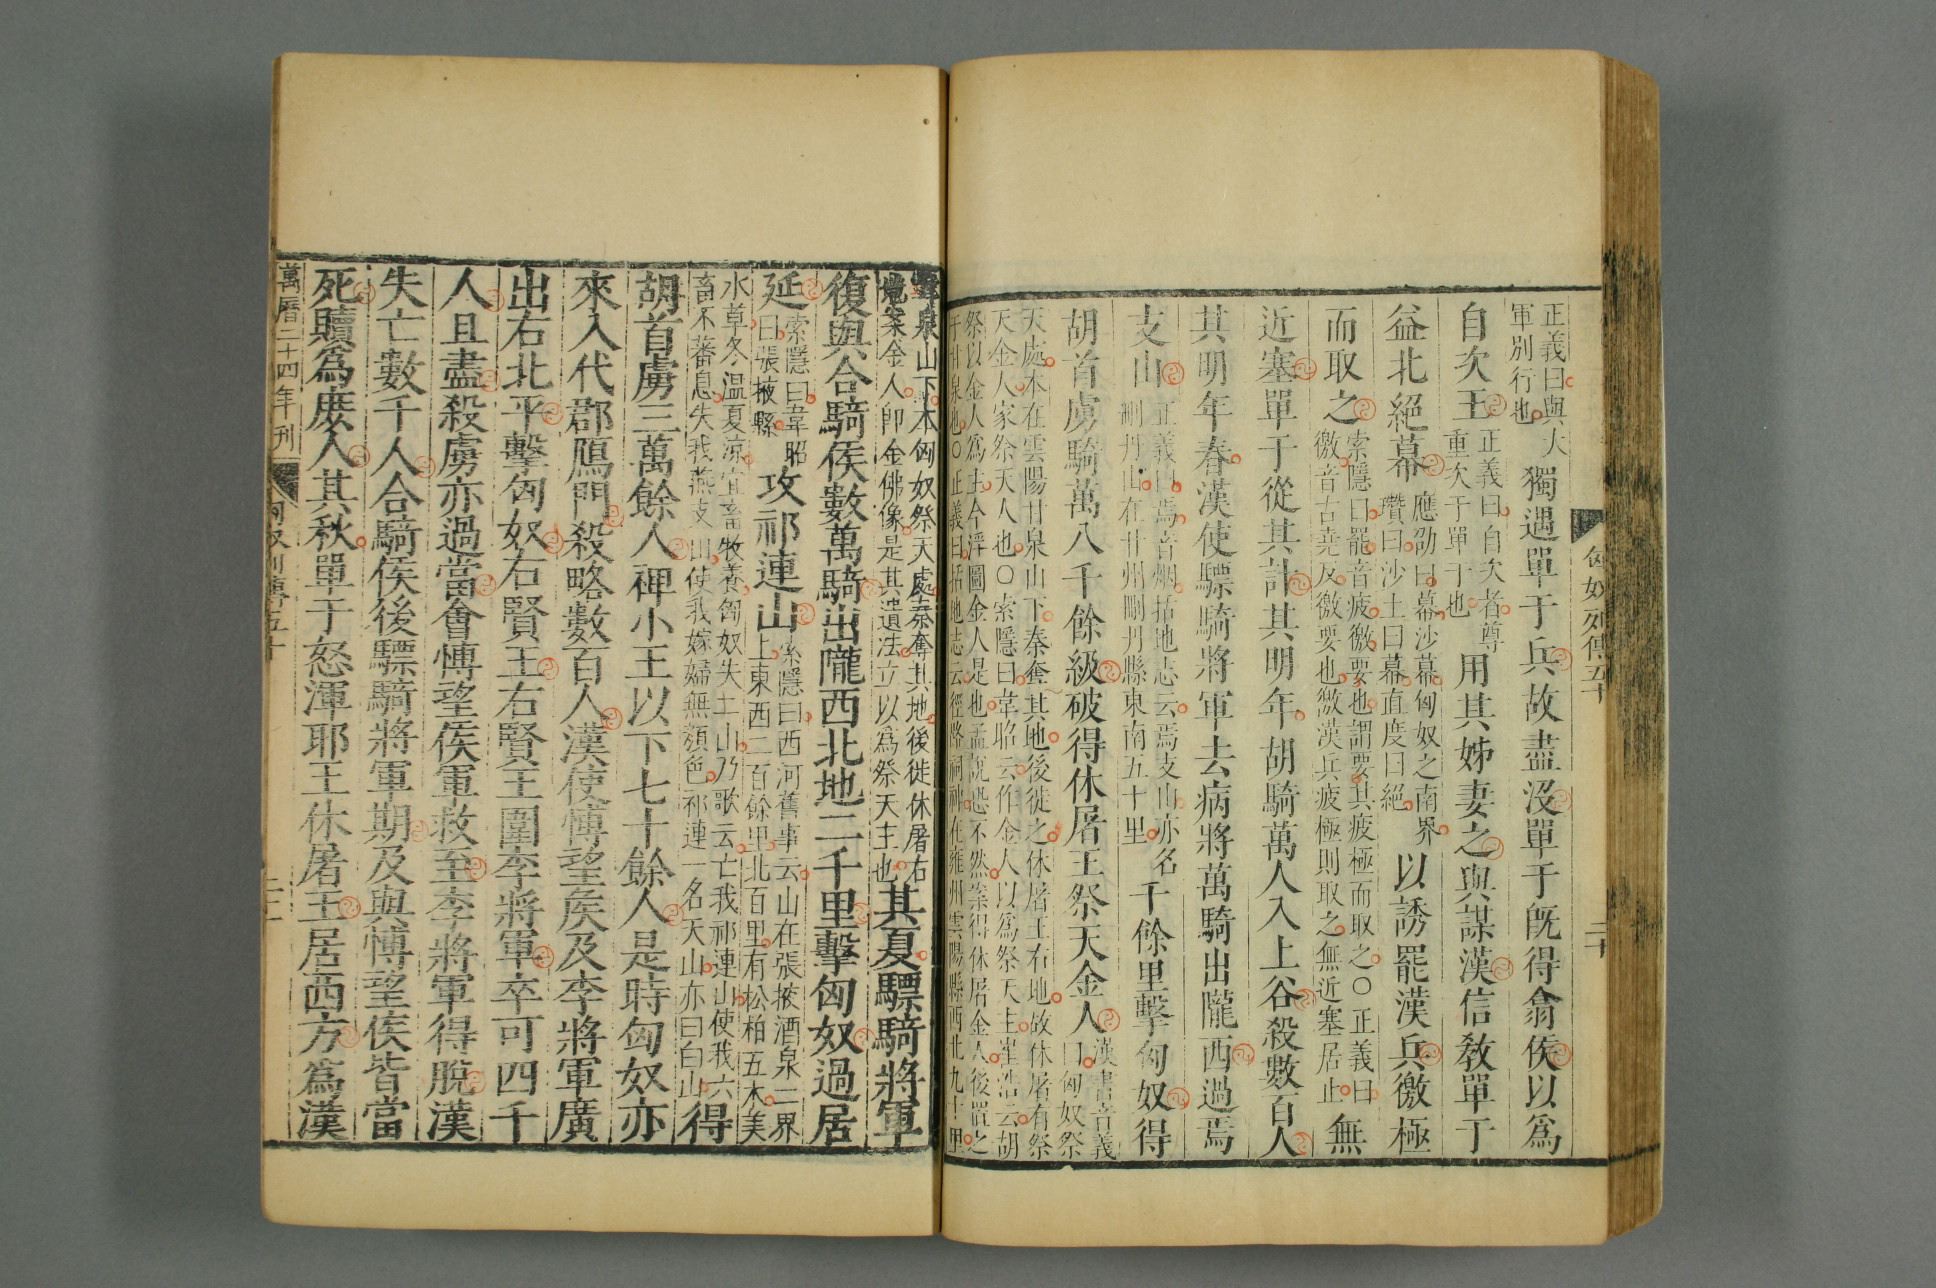 匈奴列傳五十
二十
正義曰與大
軍別行也
獨遇單于兵故盡沒單于既得翕侯以爲
自次王
正義曰自次者尊
重次于單于也
用其姊妻之與謀漢信敎單于
益北絕幕
應劭曰幕沙幕匈奴之南界
瓚曰沙土曰幕直度曰絕
以誘罷漢兵徼極
而取之
索隱曰罷音疲徼要也謂要其疲極而取之〇正義曰
徼音古堯反徼要也徼漢兵疲極則取之無近塞居止
無
近塞單于從其計其明年胡騎萬人入上谷殺數百人
其明年春漢使驃騎將軍去病將萬騎出隴西過焉
支山
正義曰焉音烟括地志云焉支山亦名
刪丹山在甘州刪丹縣東南五十里
千餘里擊匈奴得
胡首虜騎萬八千餘級破得休屠王祭天金人
漢書音義
曰匈奴祭
天處本在雲陽甘泉山下秦奪其地後徙之休屠王右地故休屠有祭
天金人家祭天人也〇索隱曰韋昭云作金人以爲祭天主崔浩云胡
祭以金人爲主今浮圖金人是也孟說恐不然案得休屠金人後置之
于甘泉也〇正義曰括地志云徑路神祠在雍州雲陽縣西北九十里
甘泉山下本匈奴祭天處秦奪其地後徙休屠右
地案金人即金佛像是其遺法立以爲祭天主也
其夏驃騎將軍
復與合騎侯數萬騎出隴西北地二千里擊匈奴過居
延
索隱曰韋昭
曰張掖縣
攻祁連山
索隱曰西河舊事云山在張掖酒泉二界
上東西二百餘里北百里有松柏五木美
水草冬溫夏涼宜畜牧養匈奴失二山乃歌云亡我祁連山使我六
畜不蕃息失我燕支山使我嫁婦無顏色祁連一名天山亦曰白山
得
胡首虜三萬餘人裨小王以下七十餘人是時匈奴亦
來入代郡鴈門殺略數百人漢使博望侯及李將軍廣
出右北平擊匈奴右賢王右賢王圍李將軍卒可四千
人且盡殺虜亦過當會博望侯軍救至李將軍得脫漢
失亡數千人合騎侯後驃騎將軍期及與博望侯皆當
死贖爲庶人其秋單于怒渾耶王休屠王居西方爲漢
萬曆二十四年刊
匈奴列傳五十